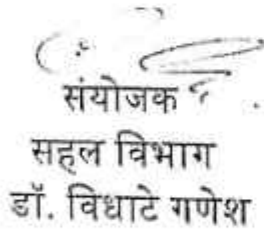 संयोजक
सहल विभाग
डॉ. विधाटे गणेश